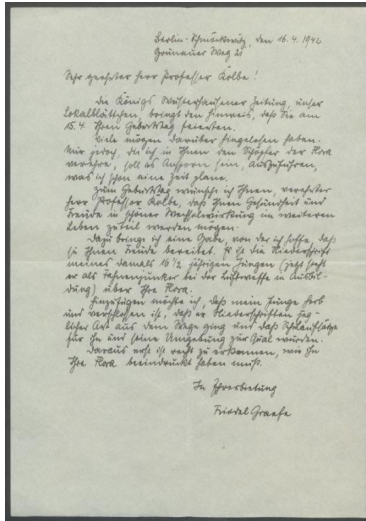 Berlin-Schmöckwitz, den 16.4.1942
Grünauer Weg 21
Sehr geehrter Herr Professor Kolbe!
Die Königs Wusterhausener Zeitung, unser
Lokalblättchen, bringt den Hinweis, daß Sie am
15.4. Ihren Geburtstag feierten.
Viele mögen darüber hinweglesen haben.
Mir jedoch, die ich in Ihnen den Schöpfer der Flora
verehre, soll es Ansporn sein, auszuführen,
was ich schon eine Zeit plane.
Zum Geburtstag wünsche ich Ihnen, verehrter
Herr Professor Kolbe, daß Ihnen Gesundheit und
Freude in schöner Wechselwirkung im weiteren
Leben zuteil werden mögen.
Dazu bringe ich eine Gabe, von der ich hoffe, daß
sie Ihnen Freude bereitet. Es ist die Niederschrift
meines damals 16 1/2 jährigen Jungen (jetzt steht
er als Fahnenjunker bei der Luftwaffe in Ausbil-
dung) über Ihre Flora.
Hinzufügen möchte ich, daß mein Junge herb
und verschlossen ist, daß er Niederschriften jeg-
licher Art aus dem Wege ging und daß Schulaufsätze
für ihn und seine Umgebung zur Qual wurden.
Daraus erst ist recht zu erkennen, wie ihn
Ihre Flora beeindruckt haben muß.
In Verehrung
Friedel Graefe